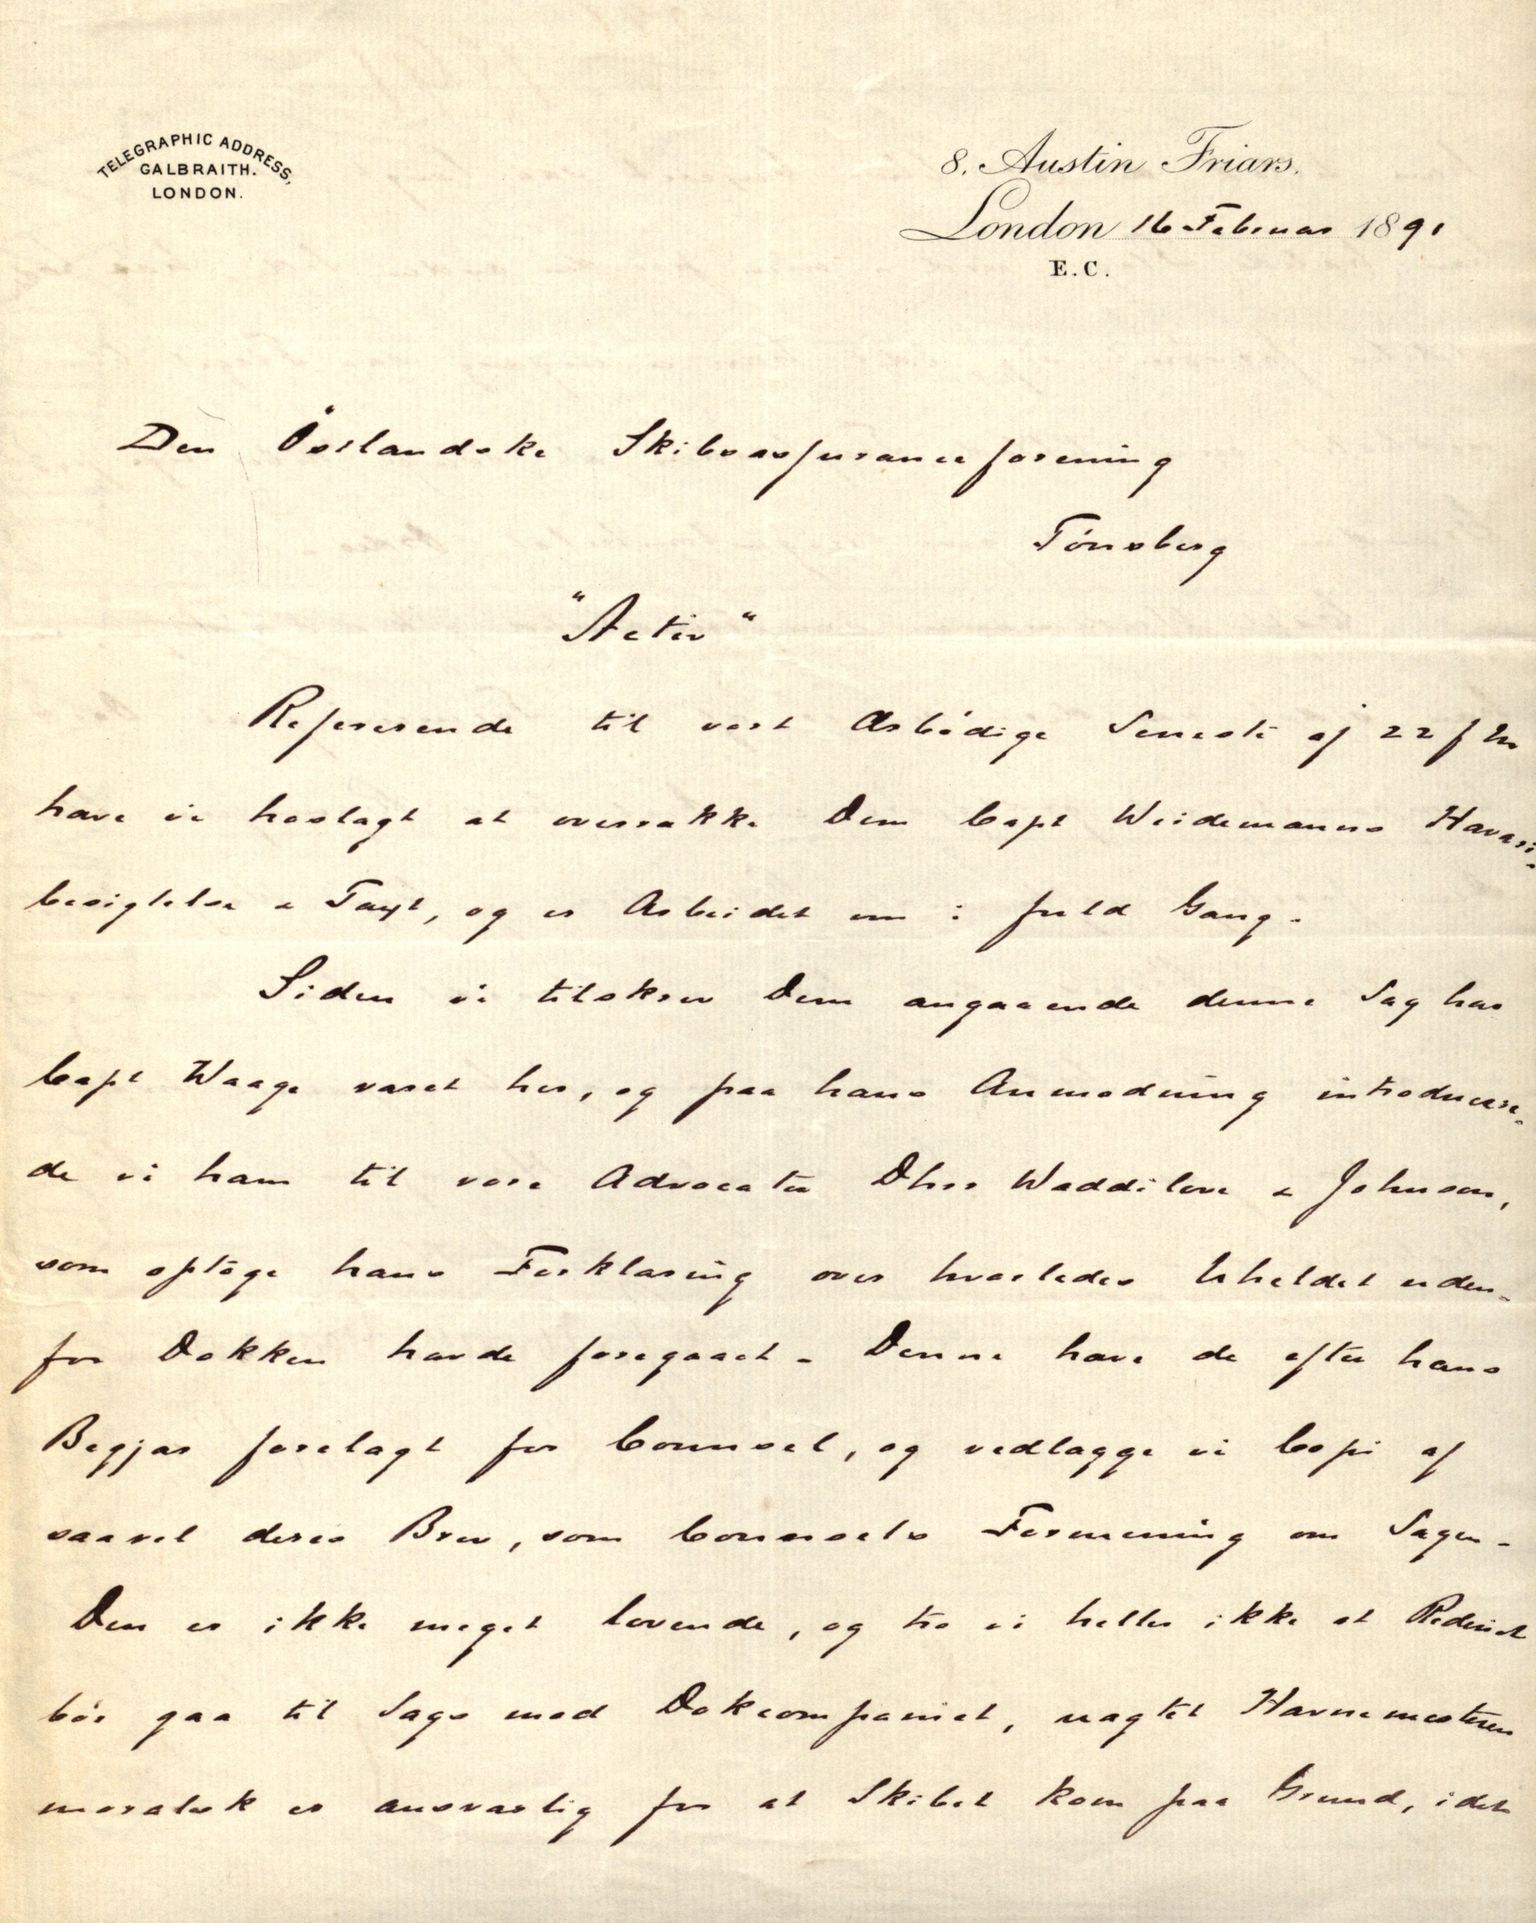 TELEGRAPHIC ADDRESS,
GALBRAITH.
LONDON.
8. Austin Friars.
London 16 Februar 1891
E.C.
Den Östlandske Skibsassuranceforening
Tönsberg
"Activ"
Refererende til vort Ærbödige Seneste af 22 f M
have vi hoslagt at overrække Dem Capt Weidemanns Havari-
besigtelse & Taxt, og er Arbeidet nu i fuld Gang.
Siden vi tilskrev Dem angaaende denne Sag har
Capt Waage været her, og paa hans Anmodning introducere-
de vi ham til vore Advocater Dhrr Waddilove & Johnson,
som optoge hans Forklaring over hvorledes Uheldet uden-
for Dokken havde foregaaet. Denne have de efter hans
Begjær forelagt for Counsel, og vedlægge vi Copi af
saavel deres Brev, som Counsels Formening om Sagen.
Den er ikke meget lovende, og tro vi heller ikke at Rederiet
bör gaa til Sags mod Dokcompaniet, uagtet Havnemesteren
moralsk er ansvarlig for at Skibet kom paa Grund, idet